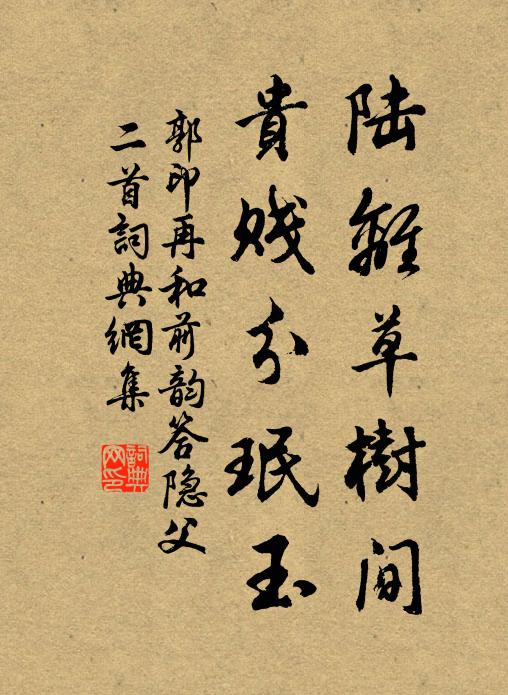 陆離草樹间
貴賤分珉玉
郭印再和前韵答隐父
二首詞典網集
詞典网印